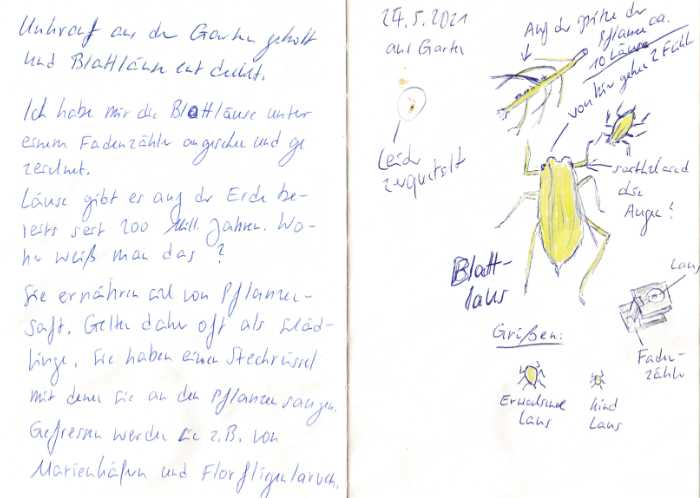 Unkraut aus dem Garten geholt
und Blattläuse entdeckt.
Ich habe mir die Blattläuse unter
einem Fadenzähler angesehen und ge
zeichnet.
Läuse gibt es auf der Erde be-
reits seit 200 Mill. Jahren. Wo-
her weiß man das?
Sie ernähren sich von Pflanzen-
saft. Gelten daher oft als Schäd-
linge. Sie haben einen Stechrüssel
mit dem sie an den Pflanzen saugen.
Gefressen werden sie z.B. von
Marienkäfern und Florfliegenlarven.
24.5.2021
aus Garten
Leider
zerquetscht
Auf der Spitze der
Pflanze ca.
10 Läuse
von hier gehen 2 Fühler
seitlich sind
die
Augen!
Blatt-
laus
Laus
Faden-
zähler
Größen:
Erwachsene
Laus
Kind
Laus